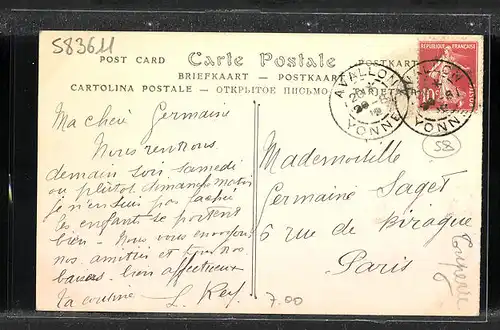 583611
POST CARD Carte Postale POSTKART
BRIEFKAART — POSTKAART
CARTOLINA POSTALE — ОТКРЫТОЕ ПИСЬМО
RÉPUBLIQUE FRANÇAISE
10c
POSTES
AVALLON
YONNE
AVALLON
YONNE
58
Ma chère Germaine
Nous rentrons
demain soir samedi
ou plutôt dimanche matin
je n'en suis pas fachée
les enfants se portent
bien - Nous vous envoyons
nos amitiés et tous nos
baisers bien affectueux
Ta cousine L. Rey
Mademoiselle
Germaine Saget
6 rue de Birague
Paris
7.00